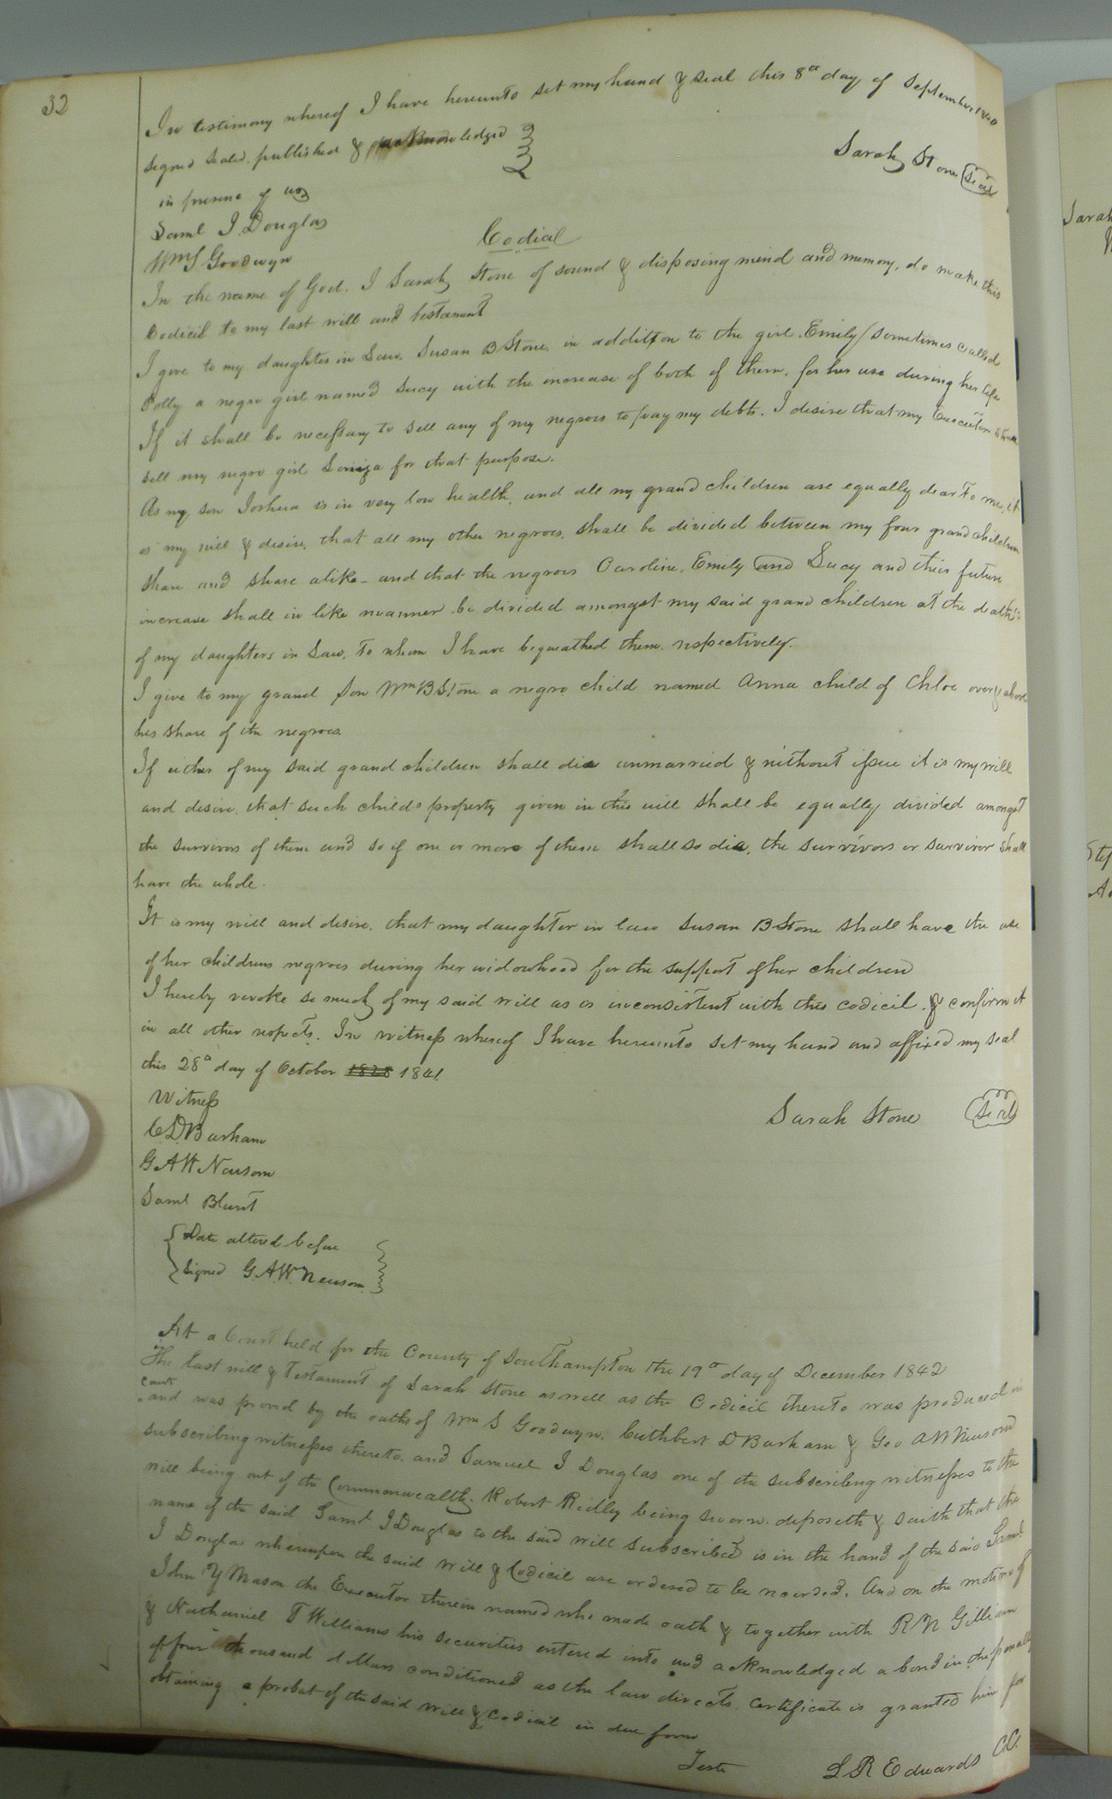 32
In testimony whereof I have hereunto set my hand & seal this 8th day of September 1840
Signed sealed, published & acknowledged
in presence of us
Sarah Stone (Seal)
Saml J Douglas
Wm S Goodwyn
Codicil
In the name of God. I Sarah Stone of sound & disposing mind and memory, do make this
Codicil to my last will and testament
I give to my daughter in Law Susan B Stone, in addition to the girl Emily (sometimes called
Polly a negro girl named Lucy with the increase of both of them, for her use during her life
If it shall be necessary to sell any of my negroes to pay my debts. I desire that my Executor
sell my negro girl for that purpose.
As my son Joshua is in very low health, and all my grand children are equally dear to me, it
is my will & desire, that all my other negroes, shall be divided between my four grand children
share and share alike - and that the negroes Caroline, Emily and Lucy and their future
increase shall in like manner be divided amongst my said grand children at the death
of my daughters in Law, to whom I have bequeathed them respectively.
I give to my grand Son Wm B Stone a negro child named Anna child of Chloe over & above
his share of the negroes
If either of my said grand children shall die unmarried & without issue it is my will
and desire, that such childs property given in this will shall be equally divided amongst
the survivors of them and so if one or more of them shall so die, the survivors or survivor shall
have the whole.
It is my will and desire, that my daughter in law Susan B Stone shall have the use
of her childrens negroes during her widowhood for the support of her children
I hereby revoke so much of my said will as is inconsistent with this codicil, & confirm it
in all other respects. In witness whereof I have hereunto set my hand and affixed my seal
this 28th day of October 1828 1841
Witness
Sarah Stone (Seal)
C D Barham
G A W Newsom
Saml Blunt
Date altered before
Signed G. A. W. Newsom
At a Court held for the County of Southampton the 19th day of December 1842
The last will & Testament of Sarah Stone as well as the Codicil thereto was produced in
court and was proved by the oaths of Wm S Goodwyn, Cuthbert D Barham & Geo A W Newsom
subscribing witnesses thereto, and Samuel J Douglas one of the subscribing witnesses to the
will being out of the Commonwealth, Robert Ridley being sworn, deposeth & saith that the
name of the said Saml J Douglas to the said will subscribed is in the hand of the said Saml
J Douglas whereupon the said will & Codicil are ordered to be recorded. And on the motion of
John Y Mason the Executor therein named who made oath & together with R N Gilliam
& Nathaniel T Williams his securities entered into and acknowledged a bond in the penalty
of four thousand dollars conditioned as the law directs, certificate is granted him for
obtaining a probat of the said will & codicil in due form
Teste
L R Edwards C.C.